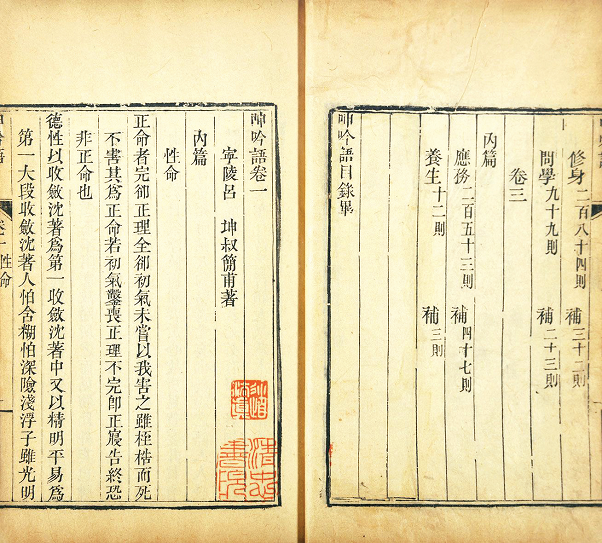 修身二百八十四則　補三十二則
問學九十九則　補二十三則
卷三
內篇
應務二百五十三則　補四十七則
養生十二則　補三則
呻吟語目錄畢
呻吟語卷一
寧陵呂　坤叔簡甫著
內篇
性命
正命者完卻正理全卻初氣未嘗以我害之雖桎梏而死
不害其爲正命若初氣鑿喪正理不完卽正寢告終恐
非正命也
德性以收斂沈著爲第一收斂沈著中又以精明平易爲
第一大段收斂沈著人怕含糊怕深險淺浮子雖光明
卷一　性命